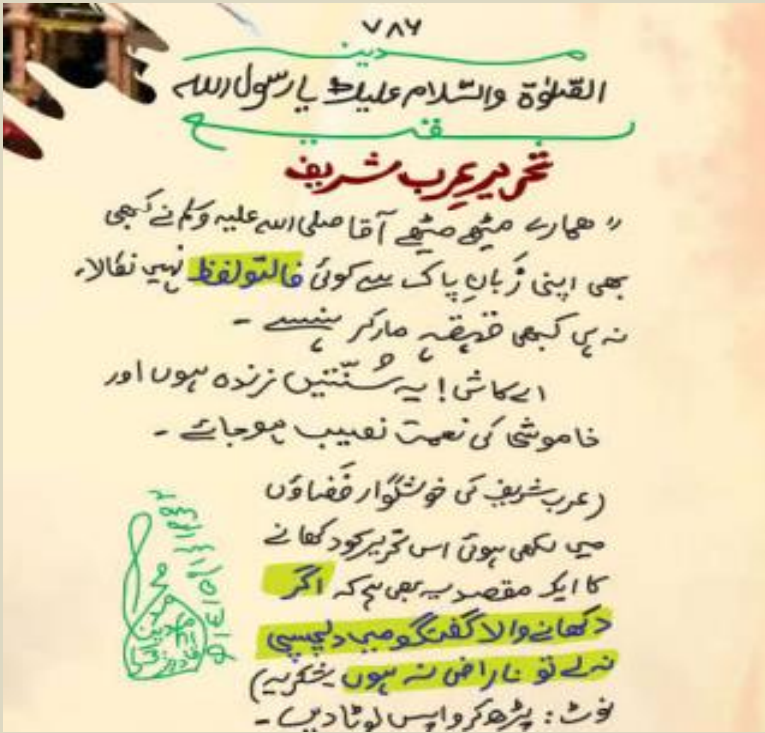 ۷۸۶
مدینہ
الصَّلوٰۃ والسَّلام علیک یا رسول اللہ
بقیع
تحریرِ عرب شریف
"ھمارے میٹھے میٹھے آقا صلی اللہ علیہ وسلم نے کبھی
بھی اپنی زَبانِ پاک سے کوئی فالتو لفظ نہیں نکالا،
نہ ہی کبھی قہقہہ مار کر ہنسے ۔
اے کاش! یہ سُنّتیں زندہ ہوں اور
خاموشی کی نعمت نصیب ہو جائے ۔
(عرب شریف کی خوشگوار فَضاؤں
میں لکھی ہوئی اس تحریر کو دکھانے
کا ایک مقصد یہ بھی ہے کہ اگر
دکھانے والا گفتگو میں دلچسپی
نہ لے تو ناراض نہ ہوں شکریہ)
نوٹ: پڑھ کر واپس لوٹا دیں ۔